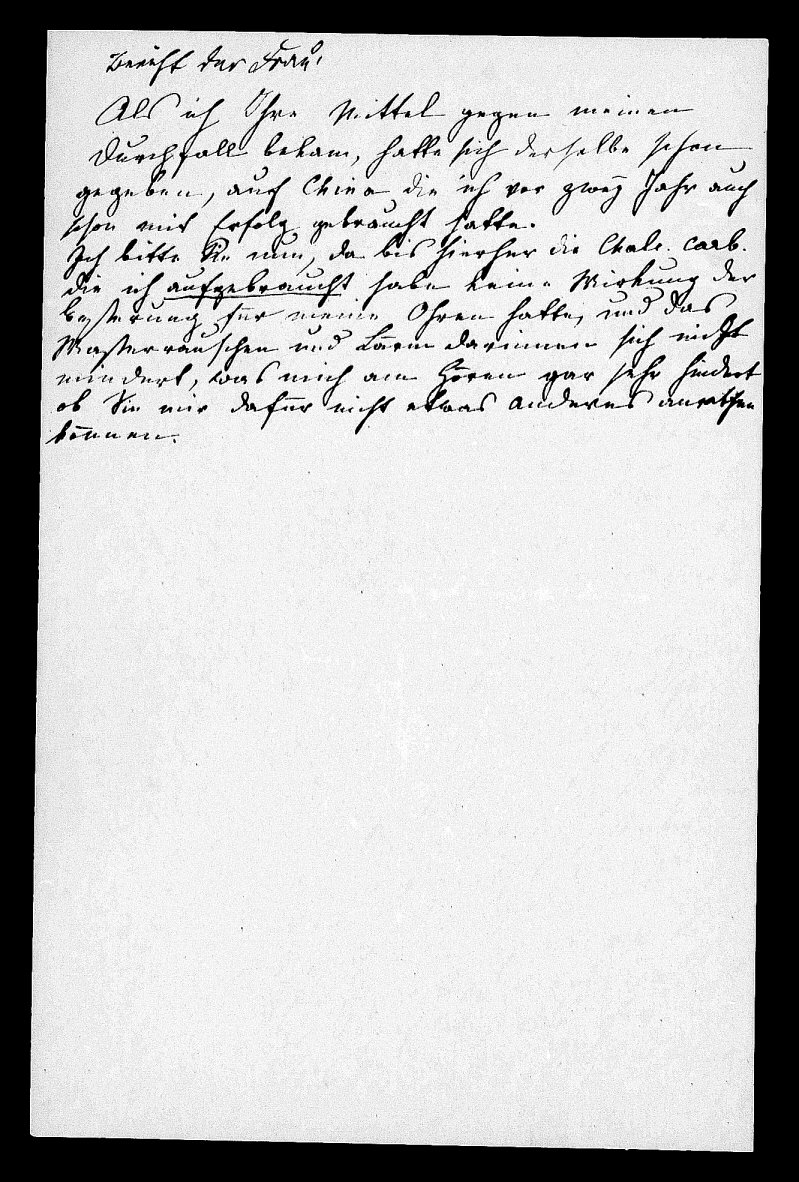 Bericht der Frau.
Als ich Ihre Mittel gegen meinen
Durchfall bekam, hatte sich derselbe schon
gegeben, auf China die ich vor zwey Jahr auch
schon mit Erfolg gebraucht hatte.
Ich bitte Sie nun, da bis hierher die Calc. carb.
die ich aufgebraucht habe keine Wirkung der
Besserung für meine Ohren hatte, und das
Wasserrauschen und Lärm darinnen sich nicht
mindert, was mich am Hören gar sehr hindert
ob Sie mir dafür nicht etwas anderes anrathen
können.